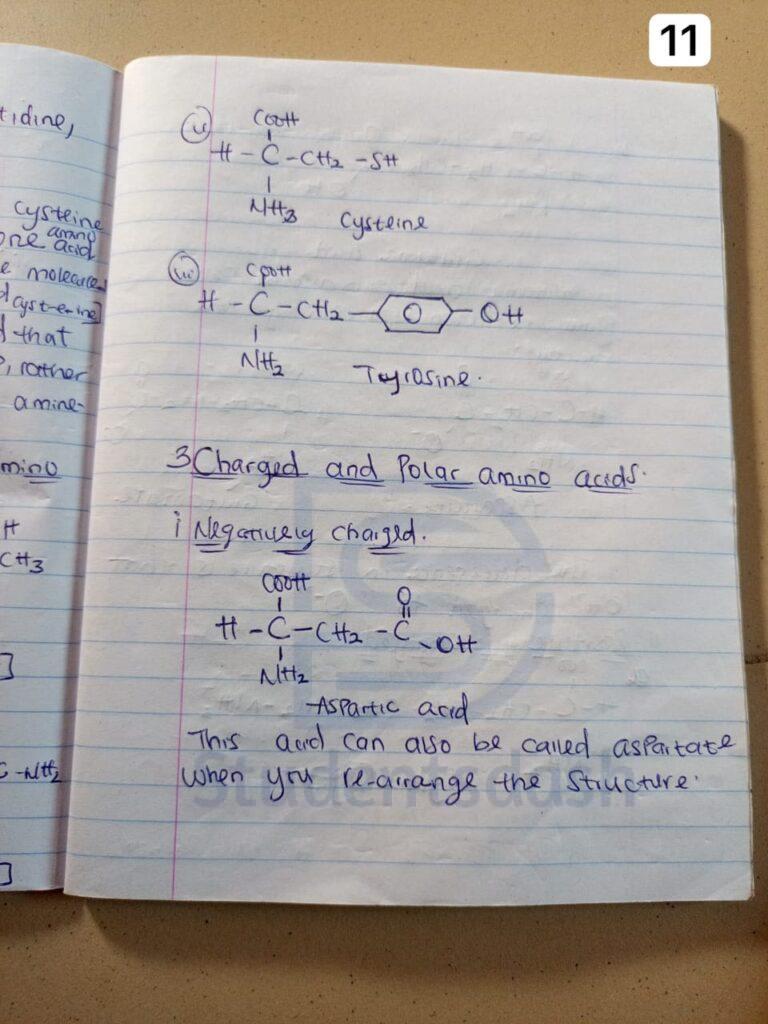 11
tidine,
cysteine
amino
one acid
e molecules
d cysteine]
d that
, rather
amine-
mino
H
CH3
]
C-NH2
]
ii
COOH
H - C - CH2 - SH
NH3
Cysteine
iii
COOH
H - C - CH2 - O - OH
NH2
Tyrosine.
3 Charged and Polar amino acids.
i Negatively charged.
COOH
O
H - C - CH2 - C - OH
NH2
Aspartic acid
This acid can also be called aspartate
when you re-arrange the structure.
Studentsdash